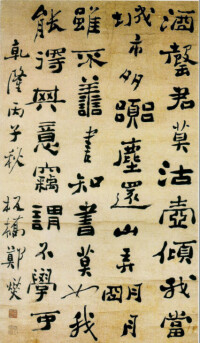 酒罄君莫沽壺傾我當
城市多囂塵還山弄明月
雖不善書知書莫如我
能得其意竊謂不學可
乾隆丙子秋板橋鄭燮